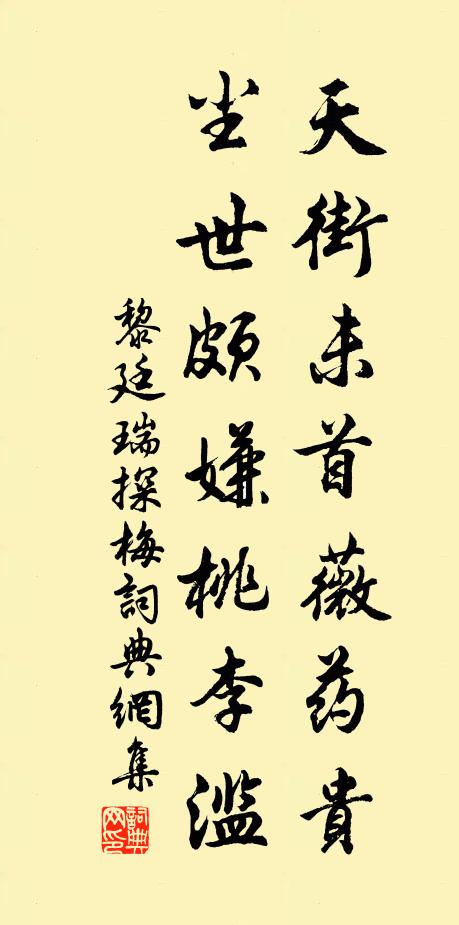 天街未首薇药貴
尘世頗嫌桃李濫
黎廷瑞探梅詞典網集
詞典网印